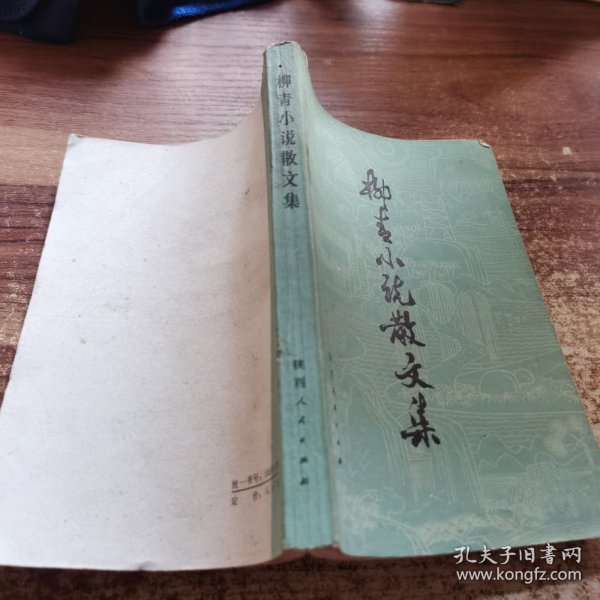 柳青小说散文集
陕西人民出版社
柳青小说散文集
统一书号：
定 价：
孔夫子旧书网
www.kongfz.com